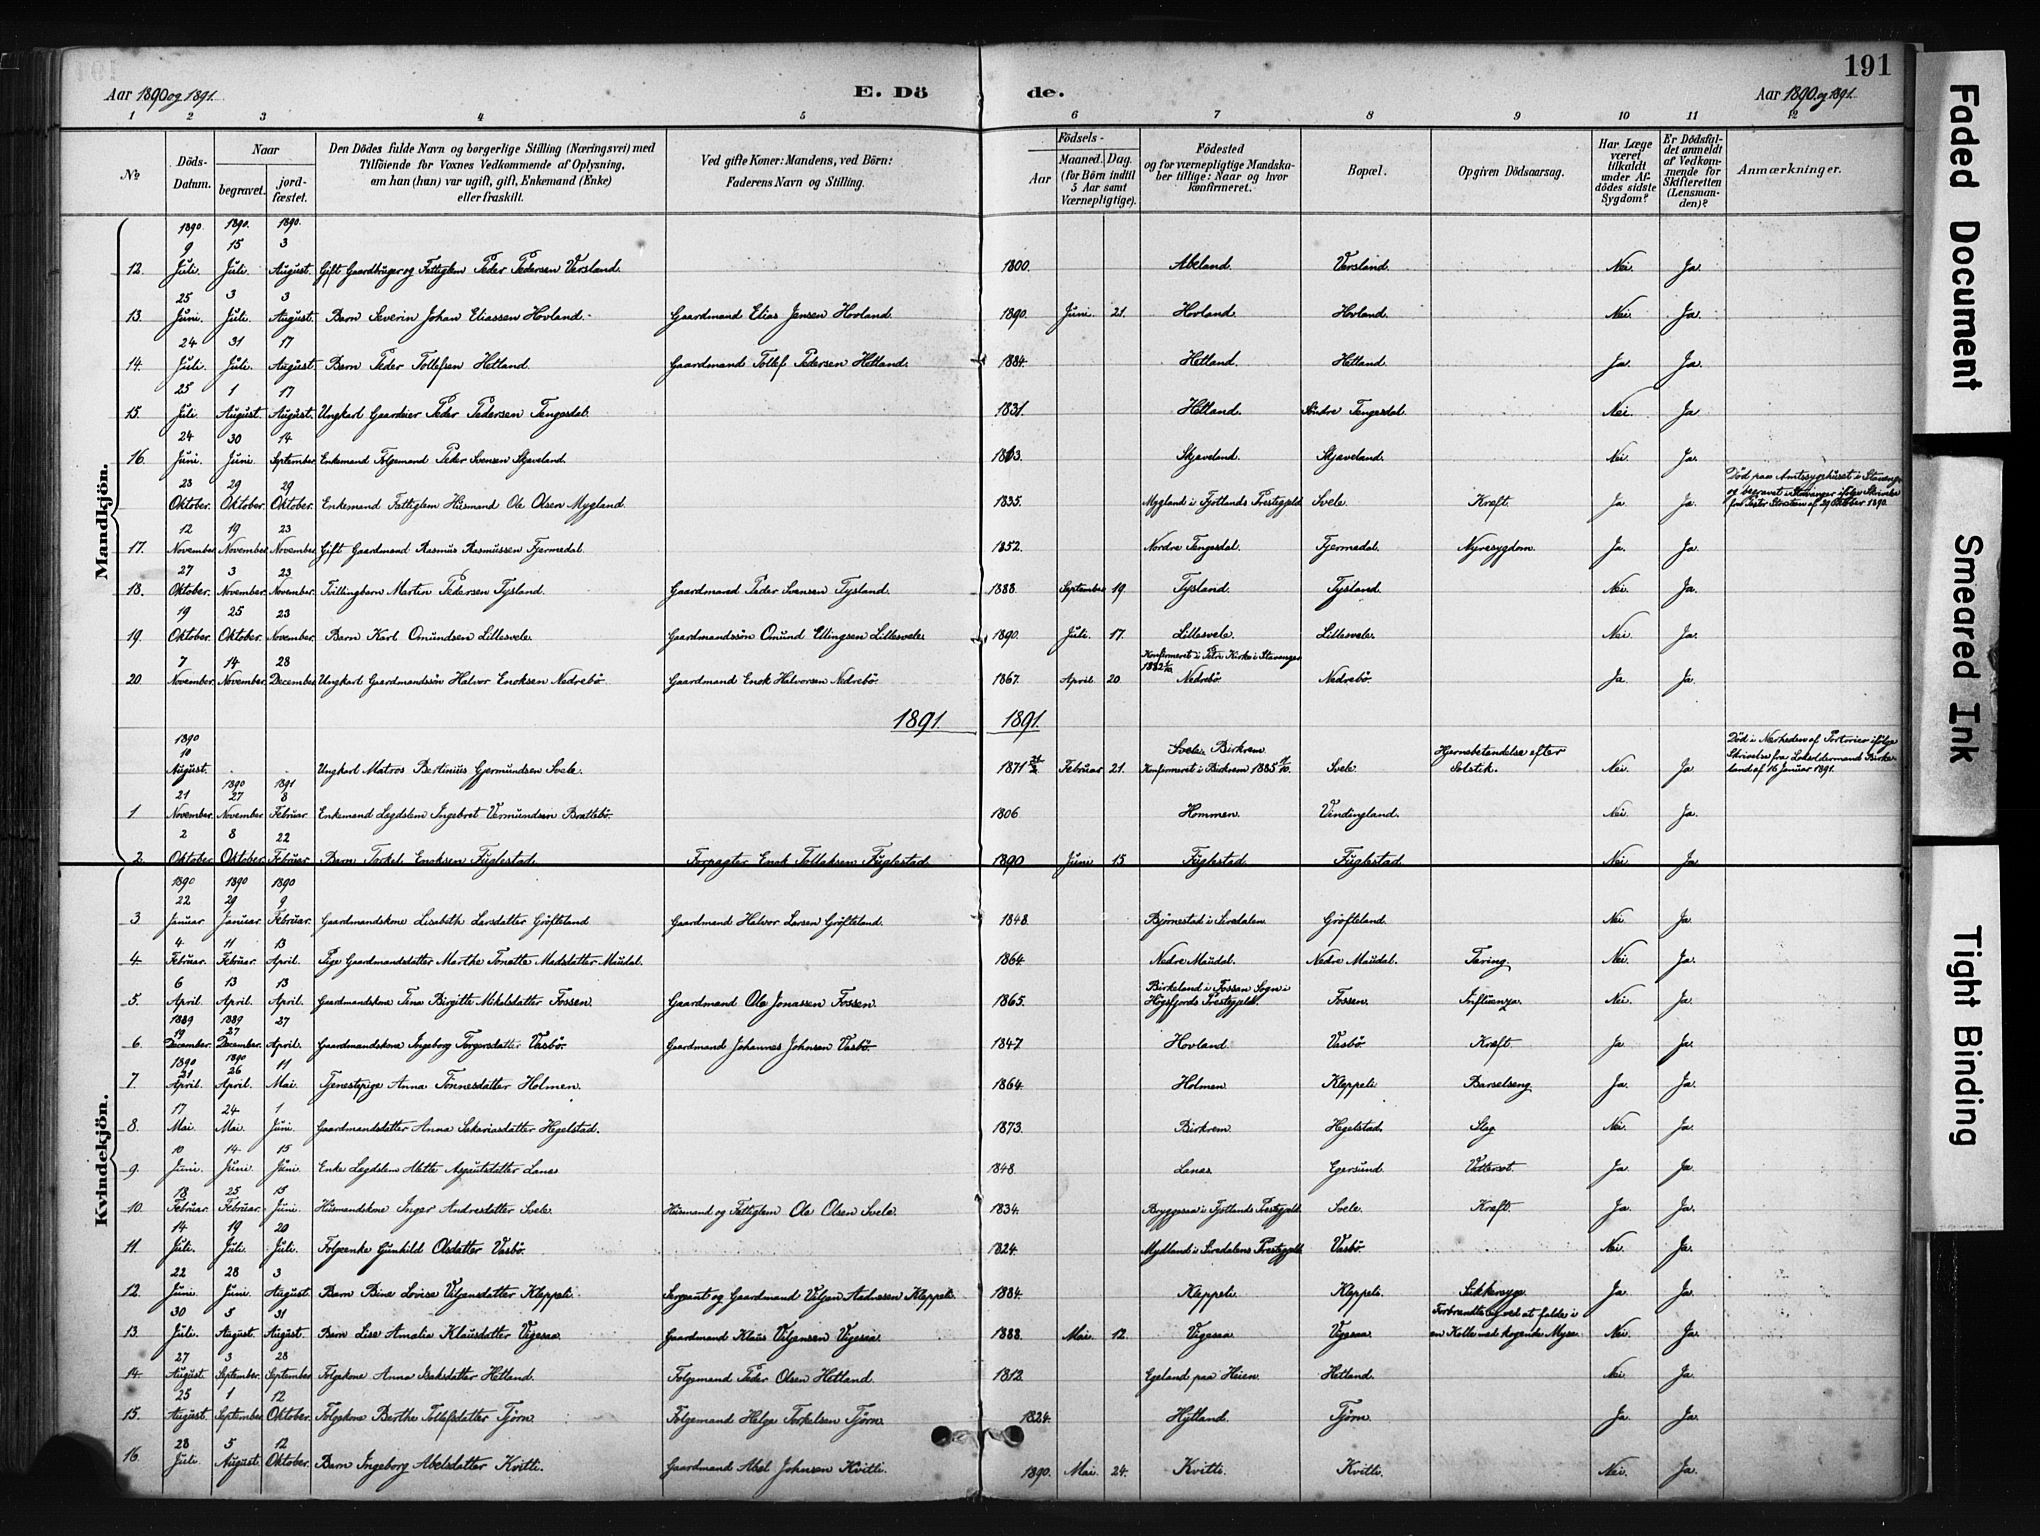 191
Aar 1890 og 1891.
E. Dö
de.
Aar 1890 og 1891.
1 2 3 4 5 6 7 8 9 10 11 12
No
Döds-Datum.
Naar
begravet.
jord-fæstet.
Den Dödes fulde Navn og borgerlige Stilling (Næringsvei) med
Tilföiende for Voxnes Vedkommende af Oplysning,
om han (hun) var ugift, gift, Enkemand (Enke)
eller fraskilt.
Ved gifte Koner: Mandens, ved Börn:
Faderens Navn og Stilling.
Födsels-
Aar
Maaned. Dag.
(for Börn indtil
5 Aar samt
Værnepligtige).
Födested
og for værnepligtige Mandska-
ber tillige: Naar og hvor
konfirmeret.
Bopæl.
Opgiven Dödsaarsag.
Har Læge
været
tilkaldt
under Af-
dödes sidste
Sygdom?
Er Dödsfal-
det anmeldt
af Vedkom-
mende for
Skifteretten
(Lensman-
den)?
Anmærkninger.
Mandkjön.
1890. 1890. 1890.
9 15 3
12. Juli. Juli. August. Gift Gaardbruger og Fattiglem Peder Pedersen Versland. 1800. Abeland. Versland. Nei. Ja.
25 3 3
13. Juni. Juli. August. Barn Severin Johan Eliassen Hovland. Gaardmand Elias Jensen Hovland. 1890. Juni. 21. Hovland. Hovland. Nei. Ja.
24 31 17
14. Juli. Juli. August. Barn Peder Tollefsen Hetland. Gaardmand Tollef Pedersen Hetland. 1884. Hetland. Hetland. Ja. Ja.
25 1 17
15. Juli. August. August. Ungkarl Gaardeier Peder Pedersen Tengesdal. 1831. Hetland. Söndre Tengesdal. Nei. Ja.
24 30 14
16. Juni. Juni. September. Enkemand Folgemand Peder Svensen Skjæveland. Skjæveland. Skjæveland. Nei. Ja.
23 29 29
Oktober. Oktober. Oktober. Enkemand Fattiglem Husmand Ole Olsen Mygland. 1835. Mygland i Fjotlands Prestegjeld. Svele. Kræft. Ja. Ja. Död paa Amtssygehuset i Stavanger
og begravet i Stavanger ifölge Skrivelse
fra 29 Oktober 1890.
12 19 23
17. November. November. November. Gift Gaardmand Rasmus Rasmussen Fjermedal. 1852. Nordre Tengesdal. Fjermedal. Nyresygdom. Ja. Ja.
27 3 23
18. Oktober. November. November. Tvillingbarn Martin Pedersen Tysland. Gaardmand Peder Svensen Tysland. 1888. September 19. Tysland. Tysland. Nei. Ja.
19 25 23
19. Oktober. Oktober. November. Barn Karl Omundsen Lillesvele. Gaardmandssön Omund Ellingsen Lillesvele. 1890. Juli. 17. Lillesvele. Lillesvele. Nei. Ja.
7 14 28
20 November. November. December. Ungkarl Gaardmandssön Halvor Enoksen Nedrebö. Gaardmand Enok Halvorsen Nedrebö. 1867. April 20. Konfirmeret i Petri Kirke i Stavanger
1882 Nedrebö. Nedrebö. Ja. Ja.
1891. 1891.
1890
10
August. Ungkarl Matros Bertinius Gjermundsen Svele. 1871 Februar 21. Svele Birkrem
Konfirmeret i Birkrem 1885 Svele. Hjernebetændelse efter
Solstik. Nei. Ja. Död i Nærheden af ifölge
Skrivelse fra Birke-
land af 16 Januar 1891.
1890 1891
21 27 8
1 November. November. Februar. Enkemand Lægdslem Ingebret Vermundsen Brattebö. 1806 Hommen. Vindingland. Nei. Ja.
2 8 22
2. Oktober. Oktober. Februar. Barn Torkel Enoksen Fuglestad. Forpagter Enok Tollaksen Fuglestad. 1890 Juni 15 Fuglestad. Fuglestad. Nei. Ja.
Kvindekjön.
1890 1890 1890
22 29 9
3 Januar. Januar. Februar. Gaardmandskone Lisabeth Larsdatter Gröfteland Gaardmand Halvor Larsen Gröfteland. 1848. Björnestad i Siredalen. Gröfteland. Nei. Ja.
4 11 13
4. Februar. Februar. April. Pige Gaardmandsdatter Marthe Tonette Madsdatter Maudal. 1864. Nedre Maudal. Nedre Maudal. Tæring. Nei. Ja.
6 13 13
5. April. April. April. Gaardmandskone Tina Birgitte Mikelsdatter Fossen. Gaardmand Ole Jonassen Fossen. 1865. Birkeland i Fossan Sogn i
Högsfjords Prestegjeld. Fossen. Influenza. Nei. Ja.
1889 1889
19 27 27
6. December. December. April. Gaardmandskone Ingeborg Torgersdatter Vasbö. Gaardmand Johannes Johnsen Vasbö. 1847. Hovland. Vasbö. Kræft. Ja. Ja.
1890 1890
21 26 11
7 April. April. Mai. Tjenestepige Anna Tönnesdatter Holmen. 1864. Holmen. Kleppeli. Barselseng. Ja. Ja.
17 24 1
8. Mai. Mai. Juni. Gaardmandsdatter Anna Sakariasdatter Hegelstad. 1873. Birkrem. Hegelstad. Slag. Nei. Ja.
10 14 15
9 Juni. Juni. Juni. Enke Lægdslem Mette Aspulsdatter Lana 1848. Lana. Egersund. Vattersot. Ja. Ja.
18 25 15
10. Februar. Februar. Juni. Husmandskone Inger Andresdatter Svele. Husmand og Fattiglem Ole Olsen Svele. 1834. Bryggesaa i Fjotlands Prestegjeld. Svele. Kræft. Ja. Ja.
14 19 20
11. Juli. Juli. Juli. Folgeenke Gunhild Olsdatter Vasbö. 1824. Mydland i Siredalens Prestegjeld. Vasbö. Nei. Ja.
22 28 3
12. Juni. Juni. August. Barn Bine Lovise Vilgensdatter Kleppeli. Sergeant og Gaardmand Vilgen Andreasen Kleppeli. 1884. Kleppeli. Kleppeli. Sukkersyge. Ja. Ja.
30 5 31
13. Juli. August. August. Barn Lise Amalie Klausdatter Vigesaa. Gaardmand Klaus Vilgensen Vigesaa. 1888. Mai. 12. Vigesaa. Vigesaa. Forbrændte sig ved at falde i
en Kolle med kogende Myse. Nei. Ja.
27 3 28
14. August. September. September. Folgekone Anna Isaksdatter Hetland. Folgemand Peder Olsen Hetland. 1812. Egeland paa Heien. Hetland. Nei. Ja.
25 1 12
15. August. September. Oktober. Folgekone Berthe Tollefsdatter Tjörn. Folgemand Helge Torkelsen Tjörn. 1824. Hytland. Tjörn. Ja. Ja.
28 5 12
16. Juli. August. Oktober. Barn Ingeborg Abelsdatter Kvitti. Gaardmand Abel Johnsen Kvitti. 1890. Mai. 24. Kvitti. Kvitti. Nei. Ja.
Faded Document
Smeared Ink
Tight Binding